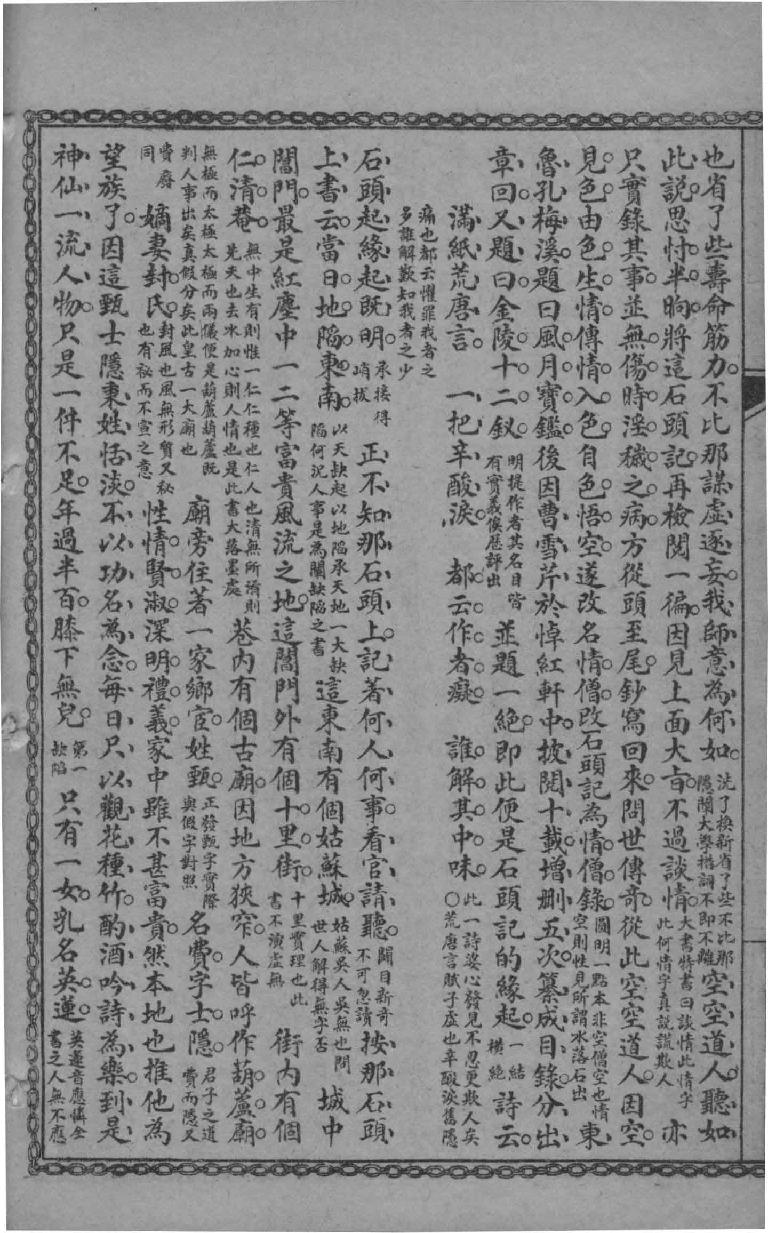 也省了些壽命筋力不比那謀虛逐妄我師意為何如洗了換新省了些不比那隱闇大學措詞不即不離空空道人聽如
此說思忖半晌將這石頭記再檢閱一徧因見上面大旨不過談情大書特書曰談情此情字此何情字真說謊欺人亦
只實錄其事並無傷時淫穢之病方從頭至尾鈔寫回來問世傳奇從此空空道人因空
見色由色生情傳情入色自色悟空遂改名情僧改石頭記為情僧錄圓明一點本非空僧空也情空則性見所謂水落石出東
魯孔梅溪題曰風月寶鑑後因曹雪芹於悼紅軒中披閱十載增刪五次纂成目錄分出
章回又題曰金陵十二釵明提作者其名目皆有實義俟歷評出並題一絕即此便是石頭記的緣起一結橫絕詩云
滿紙荒唐言　一把辛酸淚　都云作者癡　誰解其中味此一詩婆心發見不忍更欺人矣○荒唐言賦子虛也辛酸淚舊隱
痛也都云懼罪我者之多誰解歎知我者之少
石頭起緣起既明承接得峭拔正不知那石頭上記著何人何事看官請聽聞目新奇不可忽讀按那石頭
上書云當日地陷東南以天缺起以地陷承天地一大缺陷何況人事是為闡缺陷之書這東南有個姑蘇城姑蘇吳人吳無也問世人解得無字否城中
閶門最是紅塵中一二等富貴風流之地這閶門外有個十里街十里實理也此書不演虛無街內有個
仁清巷無中生有則惟一仁仁種也仁人也清無所淆則先天也去水加心則人情也是此書大落墨處巷內有個古廟因地方狹窄人皆呼作葫蘆廟
無極而太極太極而兩儀便是葫蘆葫蘆既判人事出矣真假分矣此皇古一大廟也廟旁住著一家鄉宦姓甄正發甄字實際與假字對照名費字士隱君子之道費而隱又
費廢同嫡妻封氏封風也風無形質又秘也有秘而不宣之意性情賢淑深明禮義家中雖不甚富貴然本地也推他為
望族了因這甄士隱秉姓恬淡不以功名為念每日只以觀花種竹酌酒吟詩為樂到是
神仙一流人物只是一件不足年過半百膝下無兒第一缺陷只有一女乳名英蓮英蓮音應憐全書之人無不應